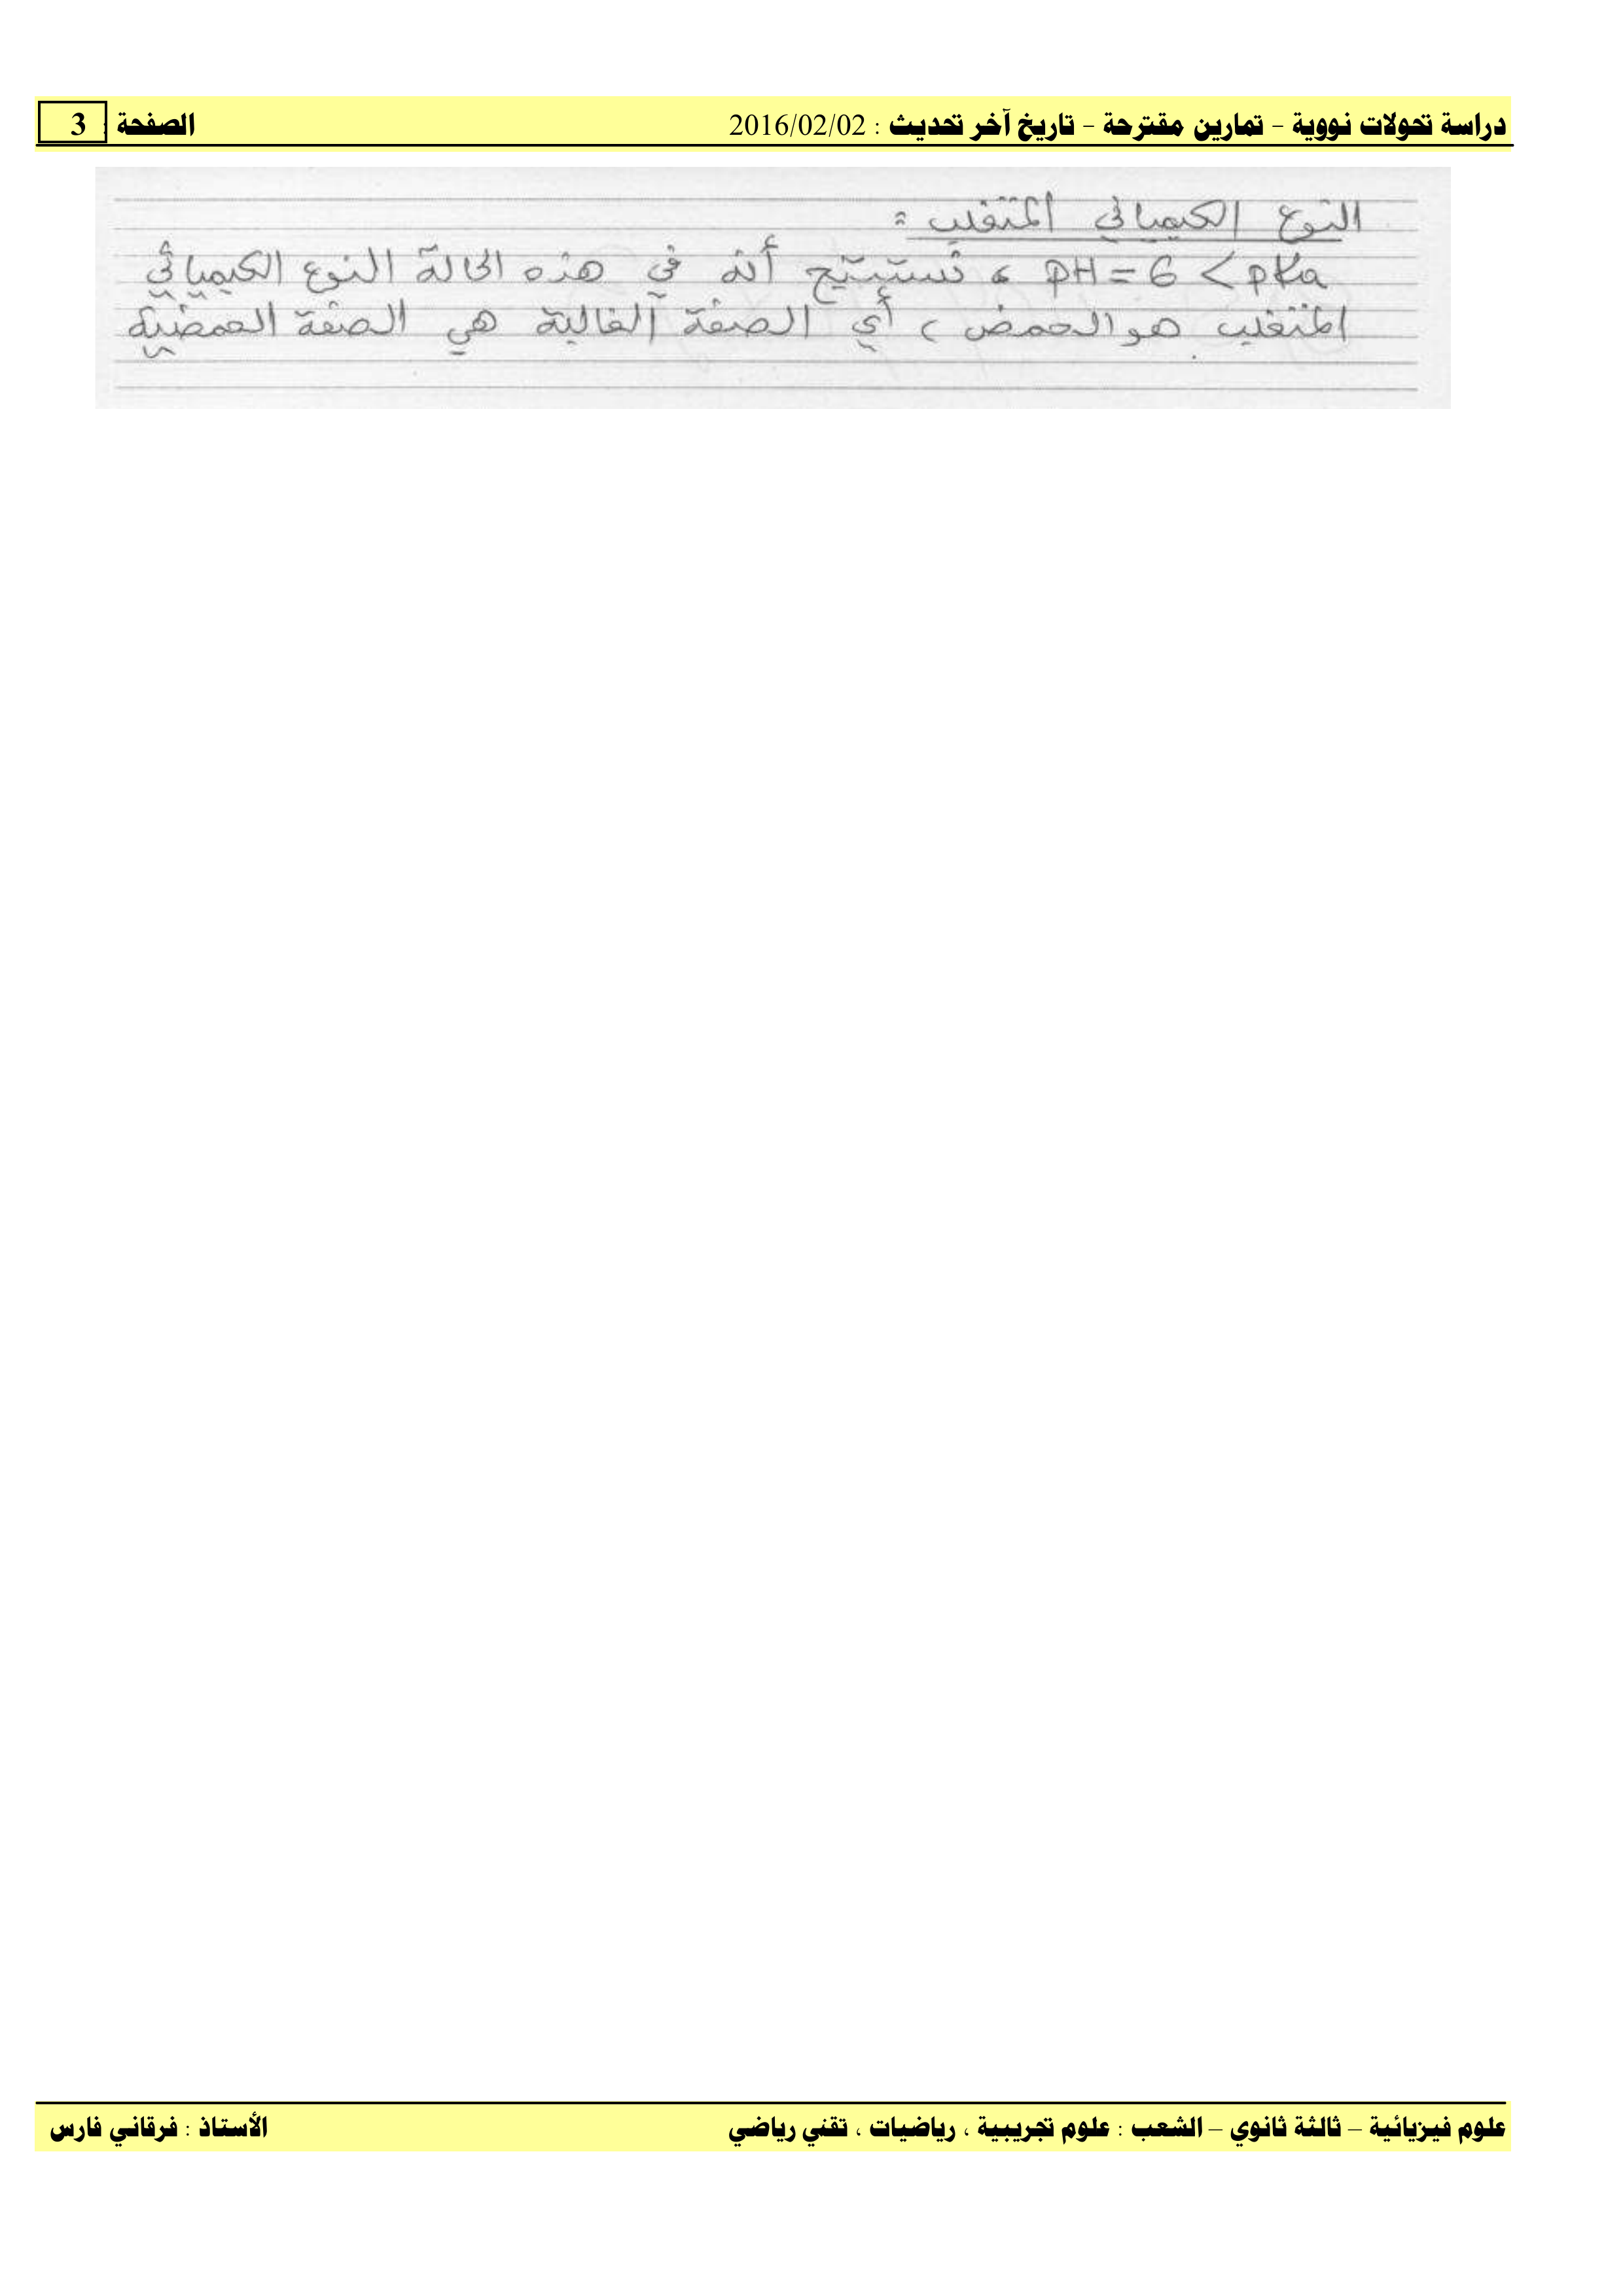 دراسة تحولات نووية - تمارين مقترحة - تاريخ آخر تحديث : 2016/02/02 الصفحة : 3
النوع الكيميائي المتغلب :
pH = 6 < pKa ، نستنتج أنه في هذه الحالة النوع الكيميائي
المتغلب هو الحمض ، أي الصفة الغالبة هي الصفة الحمضية
علوم فيزيائية – ثالثة ثانوي – الشعب : علوم تجريبية ، رياضيات ، تقني رياضي الأستاذ : فرقاني فارس